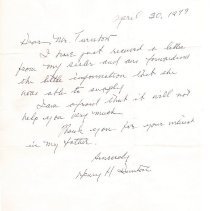 April 30, 1979
Dear Mr.
I have just received a letter
from my sister and am forwarding
the little information that she
was able to supply.
I am afraid that it will not
help you very much.
Thank you for your interest
in my father.
Sincerely
Henry H.